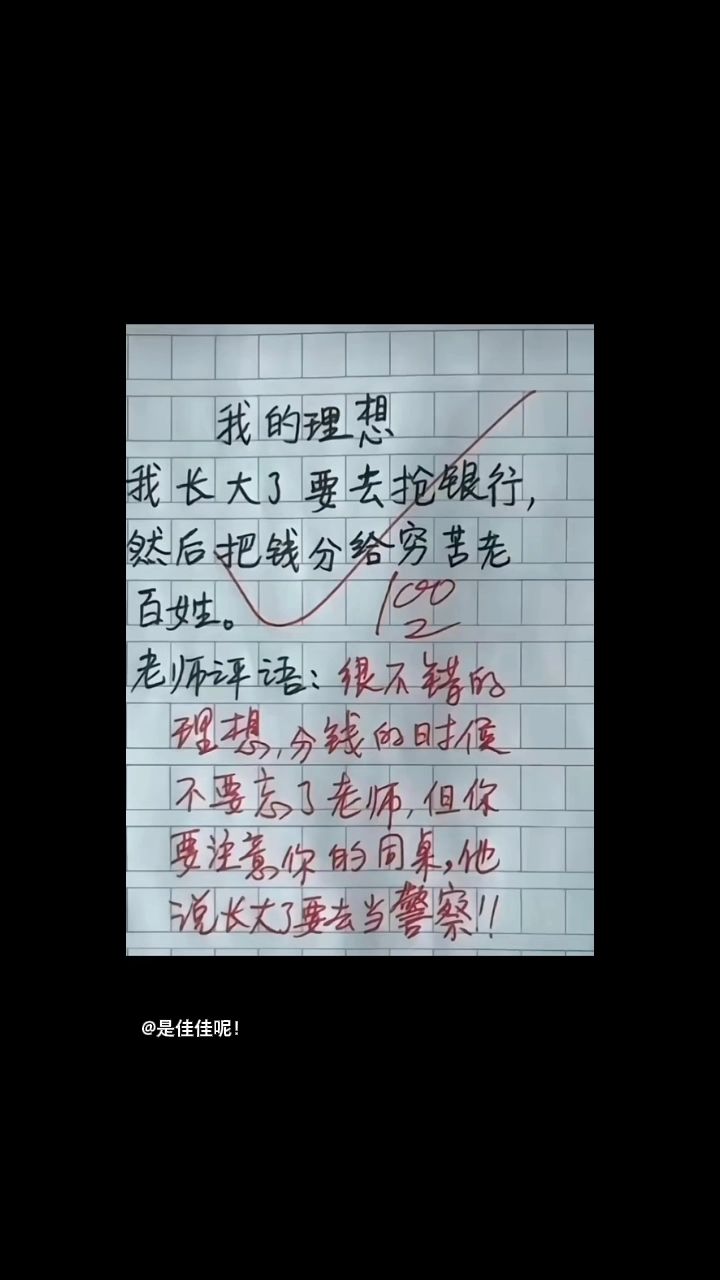 我的理想
我长大了要去抢银行，
然后把钱分给穷苦老
百姓。
100
老师评语：很不错的
理想，分钱的时候
不要忘了老师，但你
要注意你的同桌，他
说长大了要去当警察！！
@是佳佳呢！